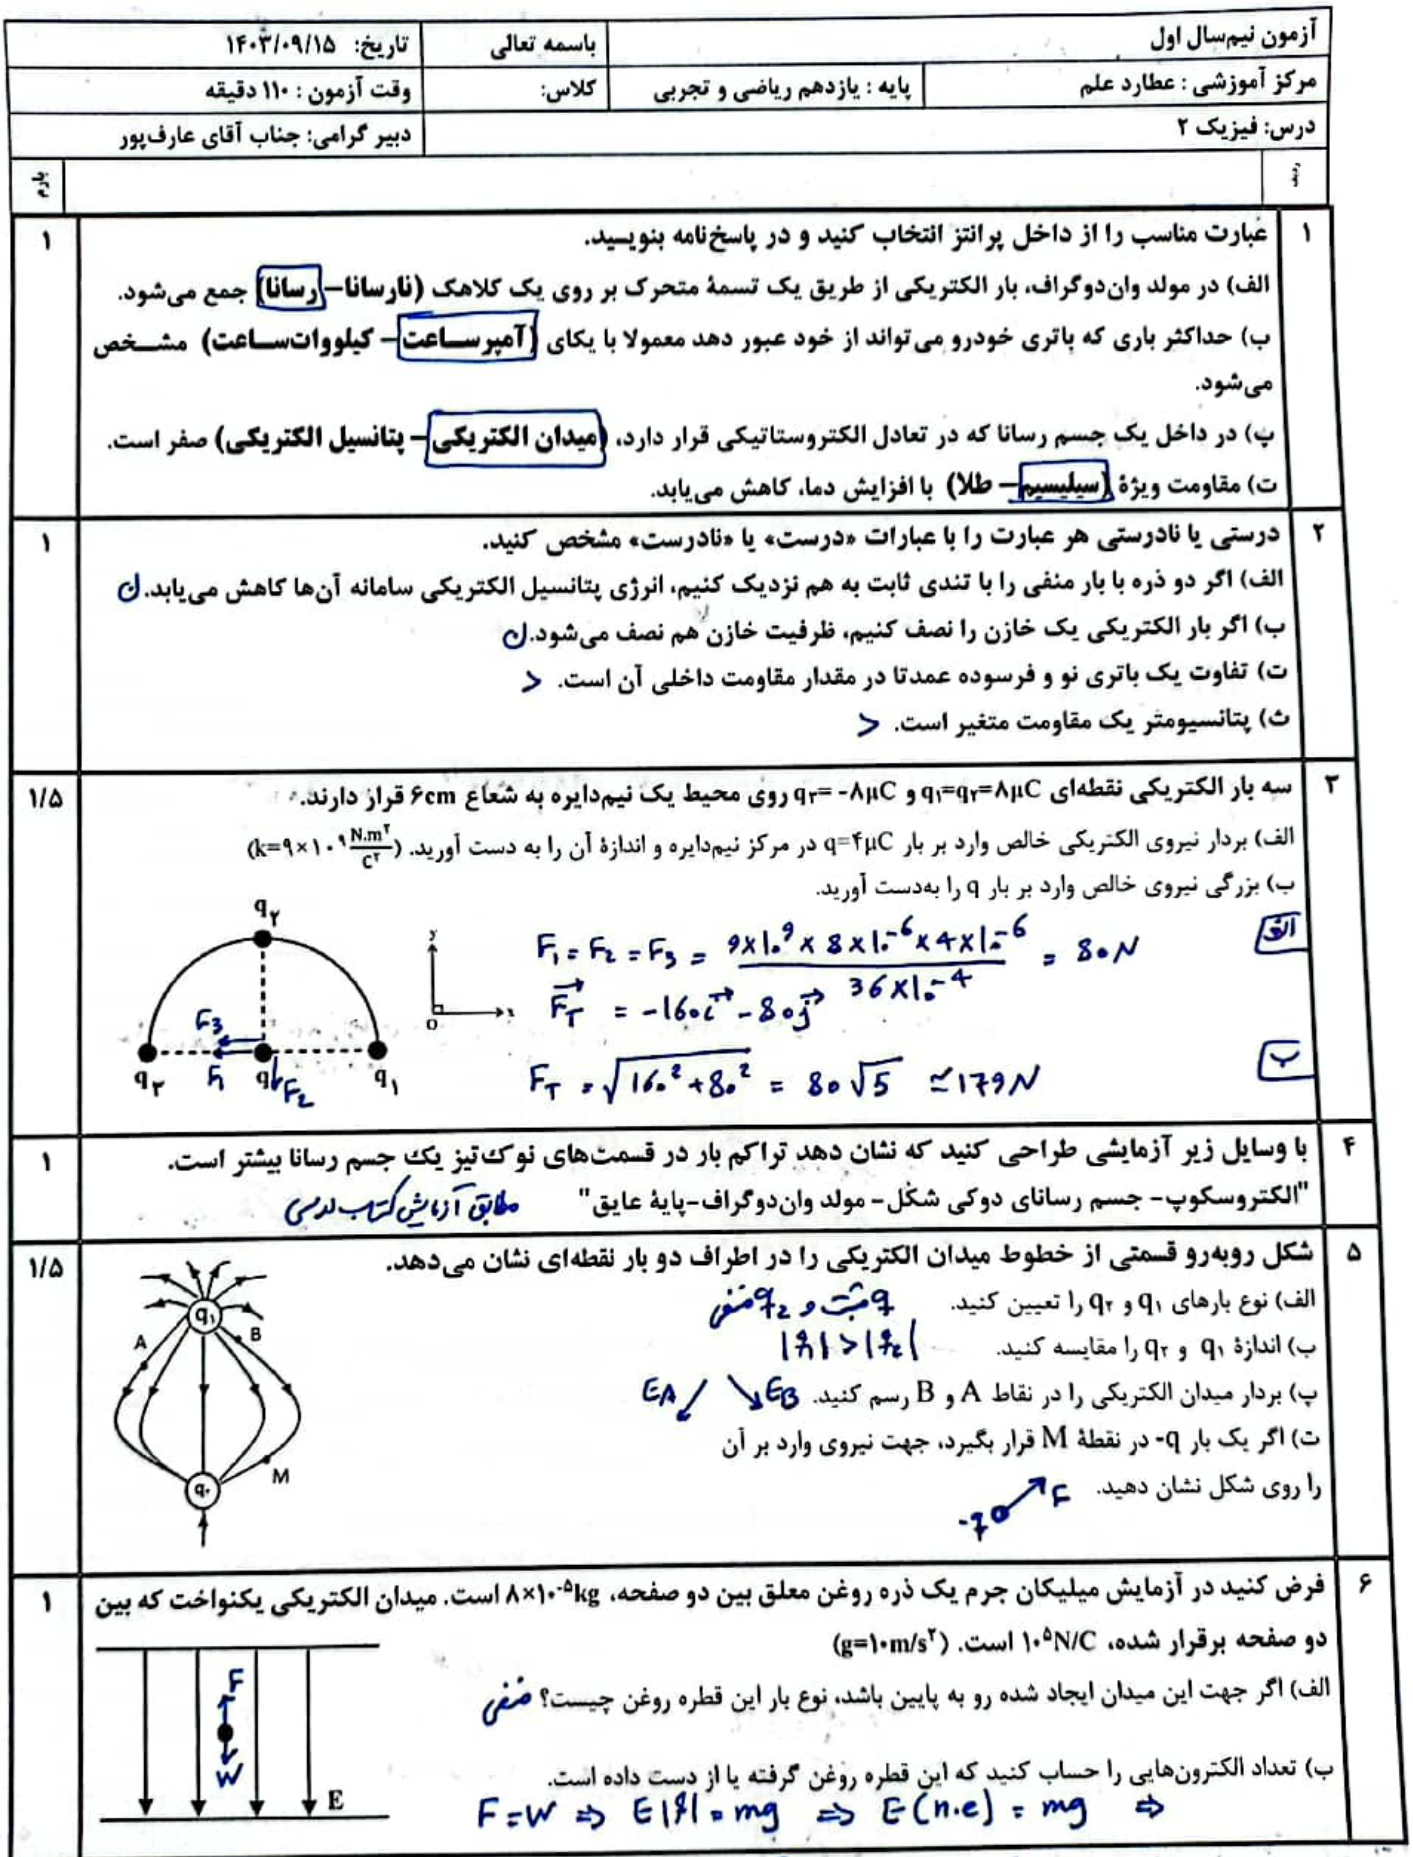 آزمون نیم‌سال اول
باسمه تعالی
تاریخ: ۱۴۰۳/۰۹/۱۵
مرکز آموزشی : عطارد علم
پایه : یازدهم ریاضی و تجربی
کلاس:
وقت آزمون : ۱۱۰ دقیقه
درس: فیزیک ۲
دبیر گرامی: جناب آقای عارف‌پور
ردیف
بارم
۱
عبارت مناسب را از داخل پرانتز انتخاب کنید و در پاسخ‌نامه بنویسید.
۱
الف) در مولد وان‌دوگراف، بار الکتریکی از طریق یک تسمهٔ متحرک بر روی یک کلاهک (نارسانا– رسانا) جمع می‌شود.
ب) حداکثر باری که باتری خودرو می‌تواند از خود عبور دهد معمولا با یکای (آمپرساعت – کیلووات‌ساعت) مشخص
می‌شود.
پ) در داخل یک جسم رسانا که در تعادل الکتروستاتیکی قرار دارد، (میدان الکتریکی – پتانسیل الکتریکی) صفر است.
ت) مقاومت ویژهٔ (سیلیسیم – طلا) با افزایش دما، کاهش می‌یابد.
۲
درستی یا نادرستی هر عبارت را با عبارات «درست» یا «نادرست» مشخص کنید.
۱
الف) اگر دو ذره با بار منفی را با تندی ثابت به هم نزدیک کنیم، انرژی پتانسیل الکتریکی سامانه آن‌ها کاهش می‌یابد. ن
ب) اگر بار الکتریکی یک خازن را نصف کنیم، ظرفیت خازن هم نصف می‌شود. ن
ت) تفاوت یک باتری نو و فرسوده عمدتا در مقدار مقاومت داخلی آن است. د
ث) پتانسیومتر یک مقاومت متغیر است. د
۳
سه بار الکتریکی نقطه‌ای q۱=q۲=۸µC و q۳= -۸µC روی محیط یک نیم‌دایره به شعاع ۶cm قرار دارند.
۱/۵
الف) بردار نیروی الکتریکی خالص وارد بر بار q=۴µC در مرکز نیم‌دایره و اندازهٔ آن را به دست آورید. (k=۹×۱۰⁹ N.m²/C²)
ب) بزرگی نیروی خالص وارد بر بار q را به‌دست آورید.
q۲
y
x
O
الف
F₁ = F₂ = F₃ = 9×10⁹ × 8×10⁻⁶ × 4×10⁻⁶ / 36×10⁻⁴ = 80N
F_T = -160i - 80j
F₃
q۳ F₁ q F₂ q۱
ب
F_T = √(160² + 80²) = 80√5 ≃ 179N
۴
با وسایل زیر آزمایشی طراحی کنید که نشان دهد تراکم بار در قسمت‌های نوک‌تیز یک جسم رسانا بیشتر است.
۱
"الکتروسکوپ– جسم رسانای دوکی شکل– مولد وان‌دوگراف–پایهٔ عایق" مطابق آزمایش کتاب درسی
۵
شکل روبه‌رو قسمتی از خطوط میدان الکتریکی را در اطراف دو بار نقطه‌ای نشان می‌دهد.
۱/۵
الف) نوع بارهای q۱ و q۲ را تعیین کنید. q₁ مثبت و q₂ منفی
ب) اندازهٔ q۱ و q۲ را مقایسه کنید. |q₁| > |q₂|
پ) بردار میدان الکتریکی را در نقاط A و B رسم کنید. E_B E_A
ت) اگر یک بار q- در نقطهٔ M قرار بگیرد، جهت نیروی وارد بر آن
را روی شکل نشان دهید. -q F
q۱
A
B
M
q۲
۶
فرض کنید در آزمایش میلیکان جرم یک ذره روغن معلق بین دو صفحه، ۸×۱۰⁻⁵kg است. میدان الکتریکی یکنواخت که بین
۱
دو صفحه برقرار شده، ۱۰⁵N/C است. (g=۱۰m/s²)
الف) اگر جهت این میدان ایجاد شده رو به پایین باشد، نوع بار این قطره روغن چیست؟ منفی
ب) تعداد الکترون‌هایی را حساب کنید که این قطره روغن گرفته یا از دست داده است.
F
W
E
F = W ⇒ E|q| = mg ⇒ E(n.e) = mg ⇒